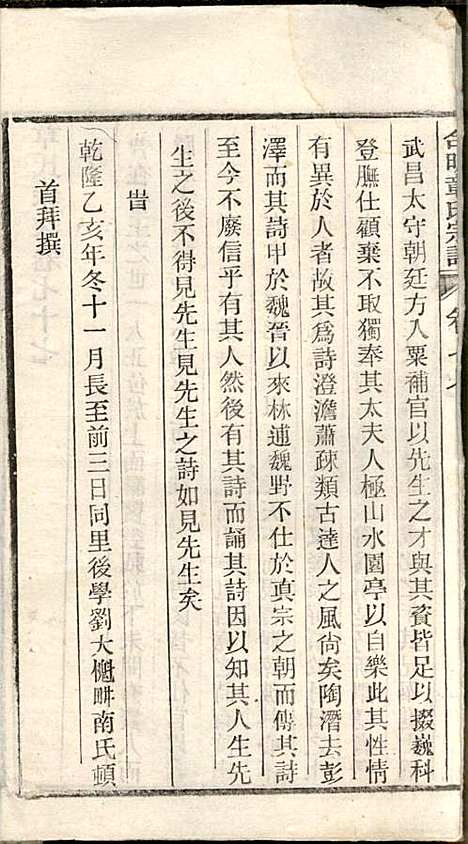 武昌太守朝廷方入粟補官以先生之才與其資皆足以掇巍科
登膴仕顧棄不取獨奉其太夫人極山水園亭以自樂此其性情
有異於人者故其爲詩澄澹蕭疎類古達人之風尙矣陶潛去彭
澤而其詩甲於魏晉以來林逋魏野不仕於真宗之朝而傳其詩
至今不廢信乎有其人然後有其詩而誦其詩因以知其人生先
生之後不得見先生見先生之詩如見先生矣
旹
乾隆乙亥年冬十一月長至前三日同里後學劉大櫆畊南氏頓
首拜撰